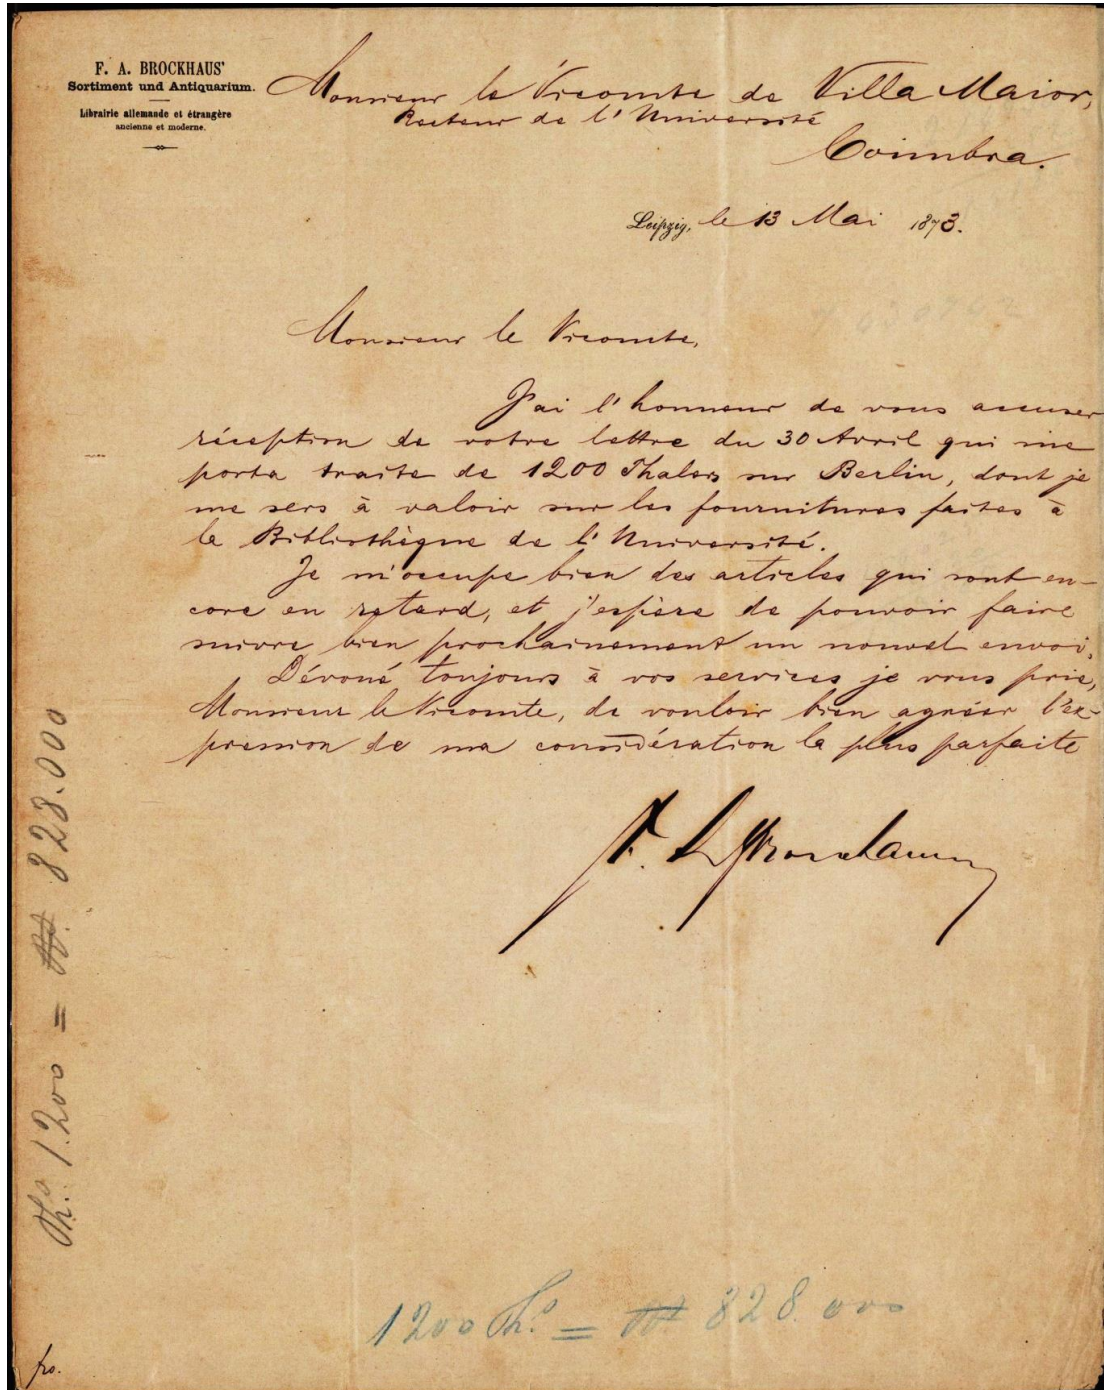 F. A. BROCKHAUS'
Sortiment und Antiquarium.
Librairie allemande et étrangère
ancienne et moderne.
Monsieur le Vicomte de Villa Maior,
Recteur de l'Université
Coimbra.
Leipzig, le 13 Mai 1873.
Monsieur le Vicomte,
J'ai l'honneur de vous accuser
réception de votre lettre du 30 Avril qui me
porta traite de 1200 Thalers sur Berlin, dont je
me sers à valoir sur les fournitures faites à
la Bibliothèque de l'Université.
Je m'occupe bien des articles qui sont en-
core en retard, et j'espère de pouvoir faire
suivre bien prochainement un nouvel envoi.
Dévoué toujours à vos services je vous prie,
Monsieur le Vicomte, de vouloir bien agréer l'ex-
pression de ma considération la plus parfaite
F. A. Brockhaus
Th.º 1.200 = 828.000
1200 Th.º = 828.000
fro.